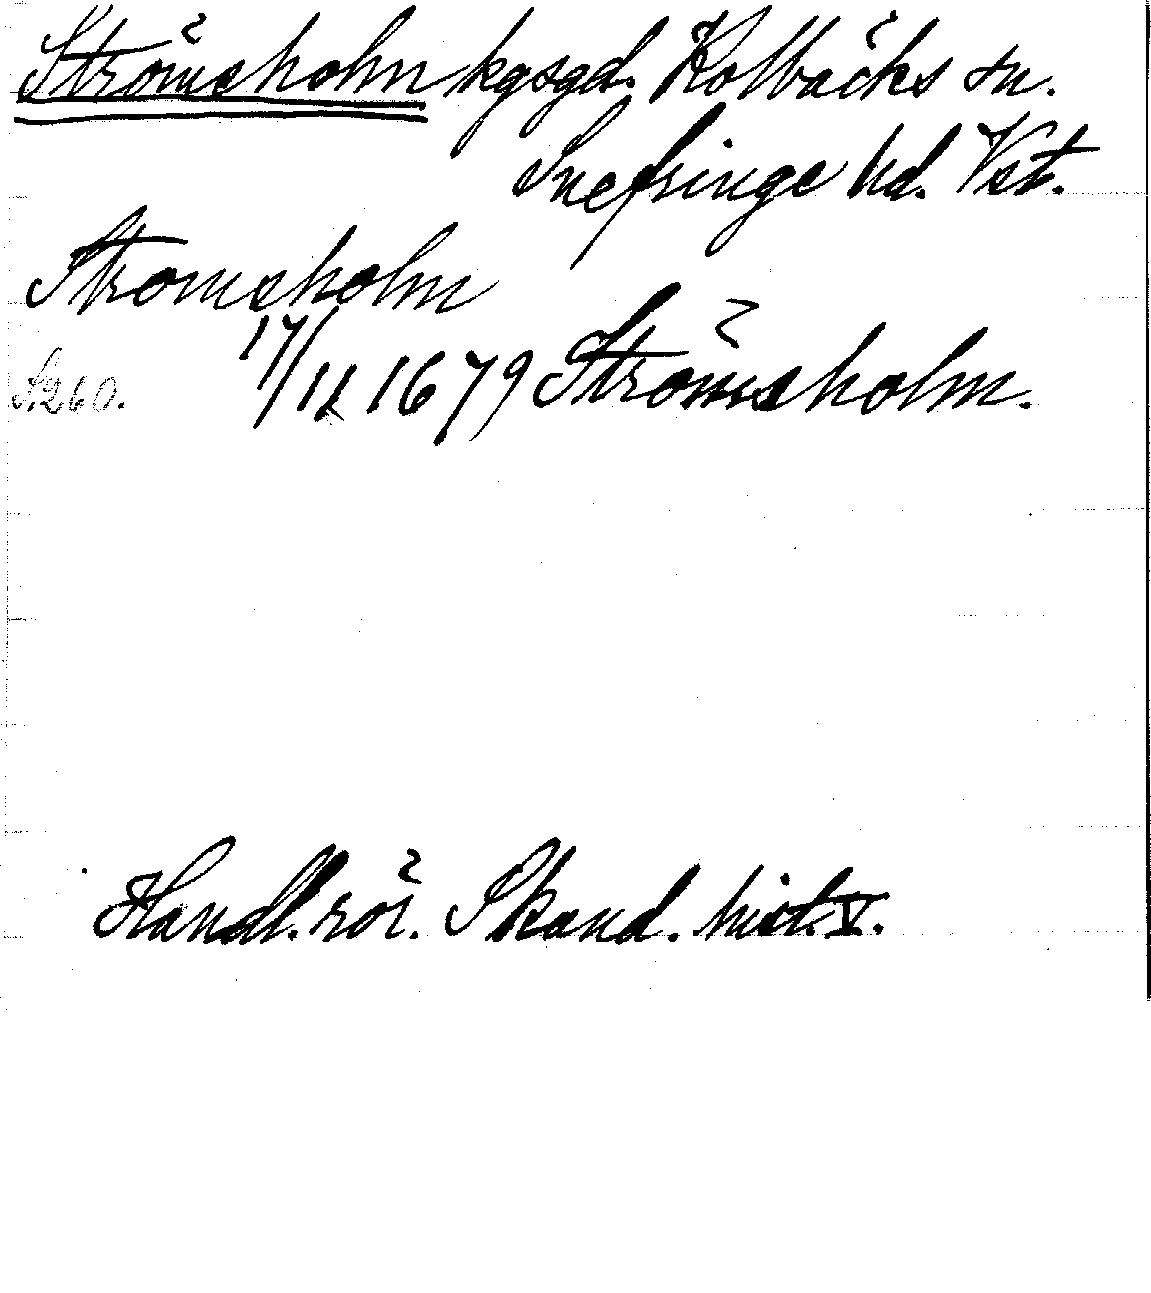 Strömsholm kgsgd. Kolbäcks sn.
Snefringe hd. Vstm.
Stromsholm
S. 260. 17/11 1679 Strömsholm.
Handl. rör. Skand. hist. V.